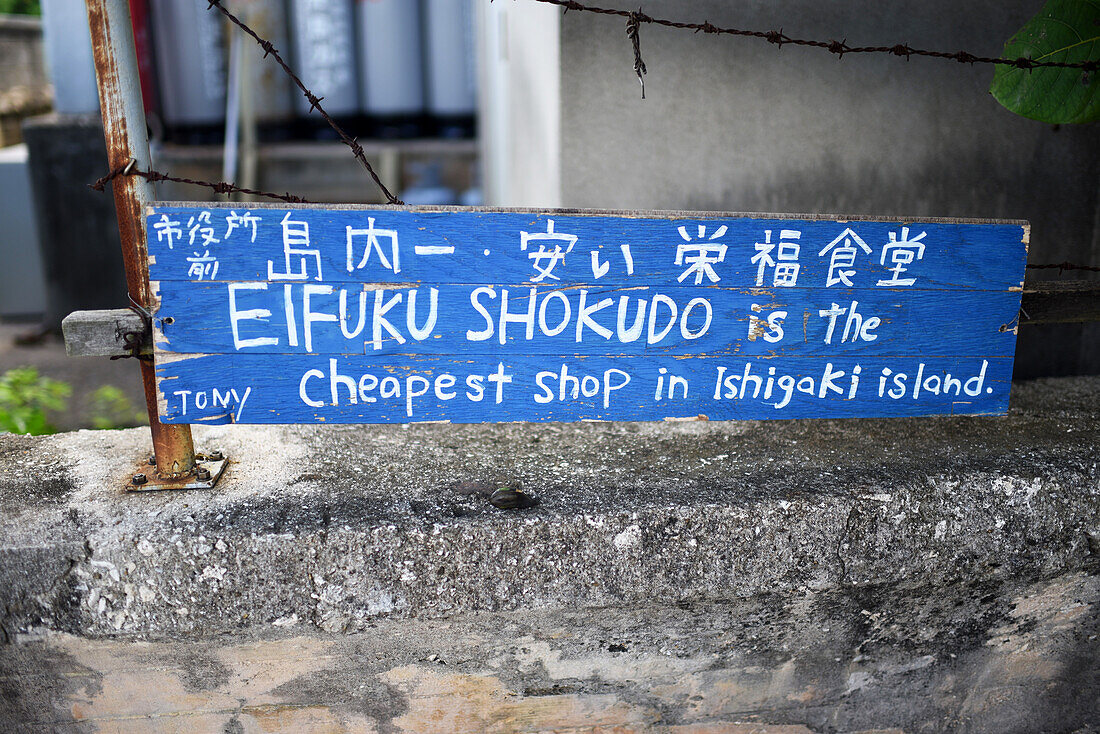 市役所前
島内一・安い栄福食堂
EIFUKU SHOKUDO is the
TONY cheapest shop in Ishigaki island.